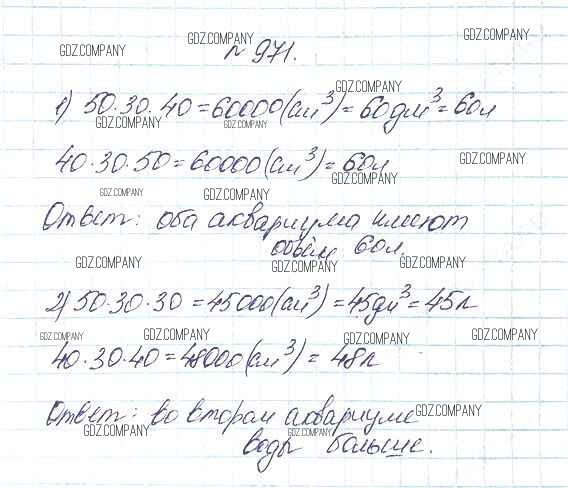 GDZ.COMPANY GDZ.COMPANY
№ 971.
GDZ.COMPANY
1) 50·30·40=60000(см³)=60дм³=60л
GDZ.COMPANY GDZ.COMPANY
40·30·50=60000(см³)=60л
GDZ.COMPANY GDZ.COMPANY
GDZ.COMPANY GDZ.COMPANY
Ответ: оба аквариума имеют
объём 60л.
GDZ.COMPANY GDZ.COMPANY GDZ.COMPANY
2) 50·30·30=45000(см³)=45дм³=45л
GDZ.COMPANY GDZ.COMPANY GDZ.COMPANY GDZ.COMPANY
40·30·40=48000(см³)=48л
Ответ: во втором аквариуме
GDZ.COMPANY
GDZ.COMPANY GDZ.COMPANY
воды больше.